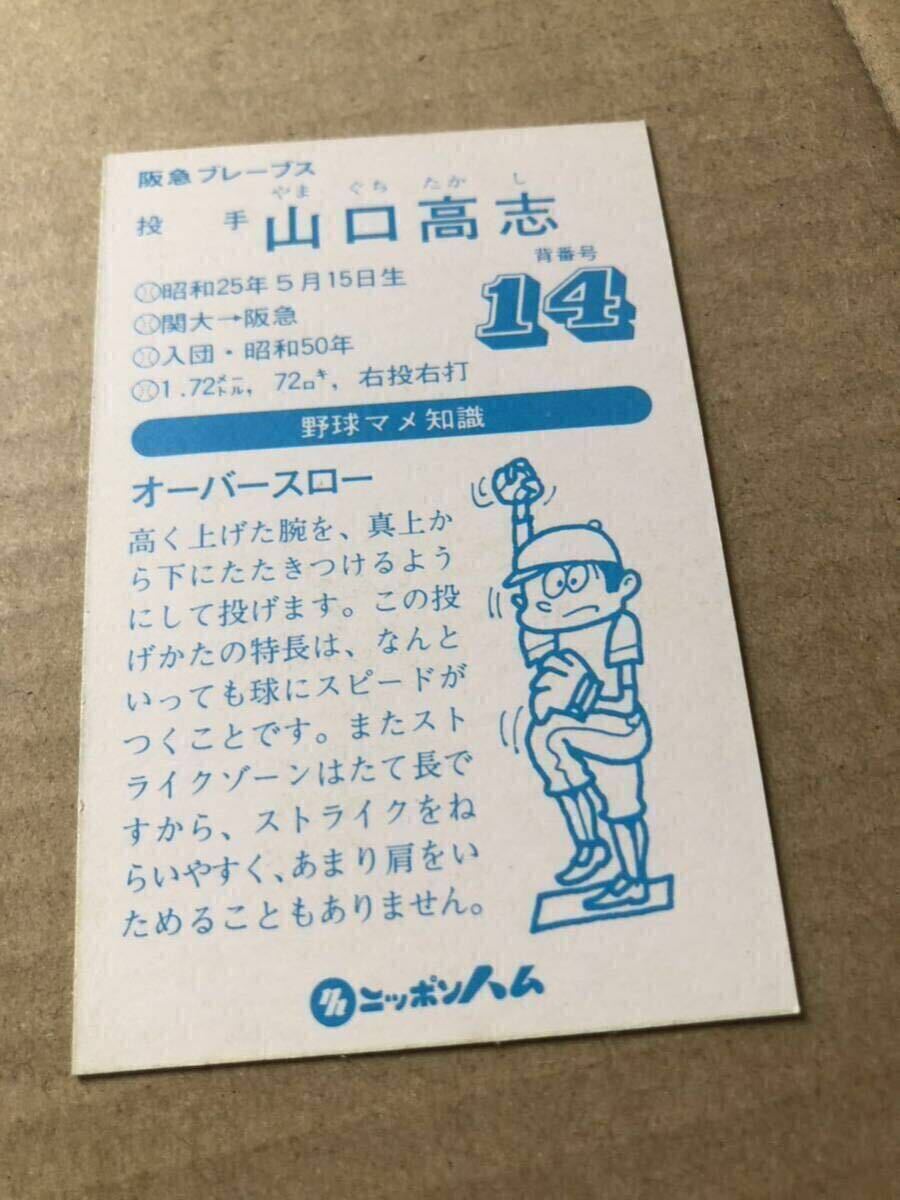 阪急ブレーブス
やま ぐち たか し
投手 山口高志
背番号
14
昭和25年5月15日生
関大→阪急
入団・昭和50年
1.72メートル, 72キロ, 右投右打
野球マメ知識
オーバースロー
高く上げた腕を、真上か
ら下にたたきつけるよう
にして投げます。この投
げかたの特長は、なんと
いっても球にスピードが
つくことです。またスト
ライクゾーンはたて長で
すから、ストライクをね
らいやすく、あまり肩をい
ためることもありません。
ニッポンハム